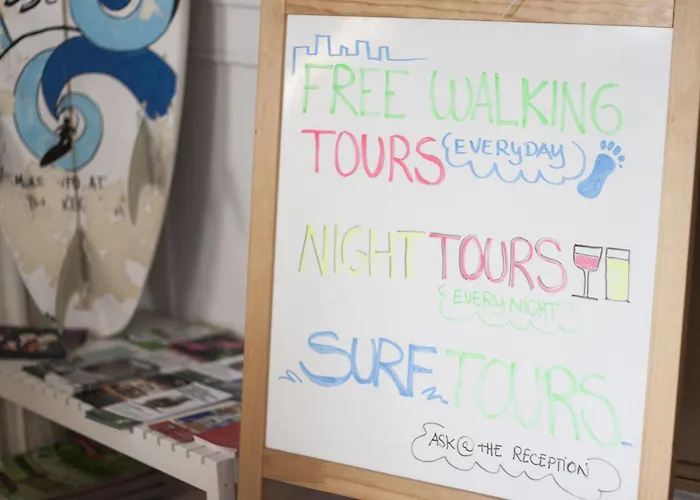 FREE WALKING
TOURS (EVERYDAY)
NIGHT TOURS
{EVERY NIGHT}
SURF TOURS
ASK @ THE RECEPTION